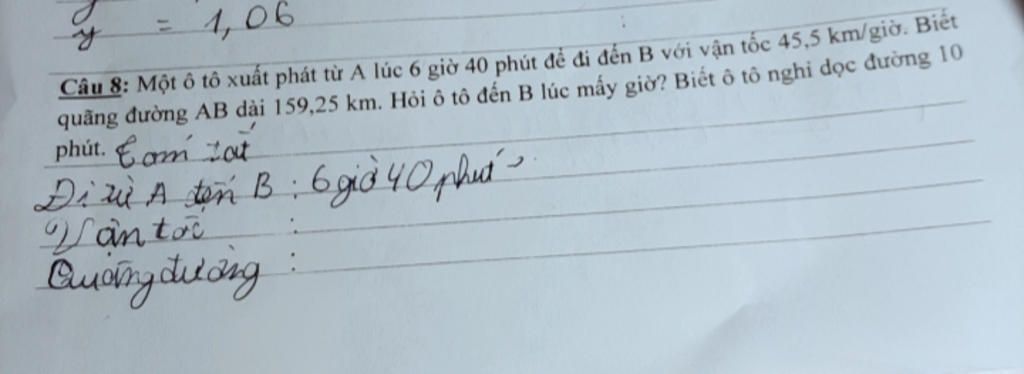 y = 1,06
Câu 8: Một ô tô xuất phát từ A lúc 6 giờ 40 phút để đi đến B với vận tốc 45,5 km/giờ. Biết
quãng đường AB dài 159,25 km. Hỏi ô tô đến B lúc mấy giờ? Biết ô tô nghỉ dọc đường 10
phút. Tóm tắt
Đi từ A đến B : 6 giờ 40 phút
Vận tốc :
Quãng đường :